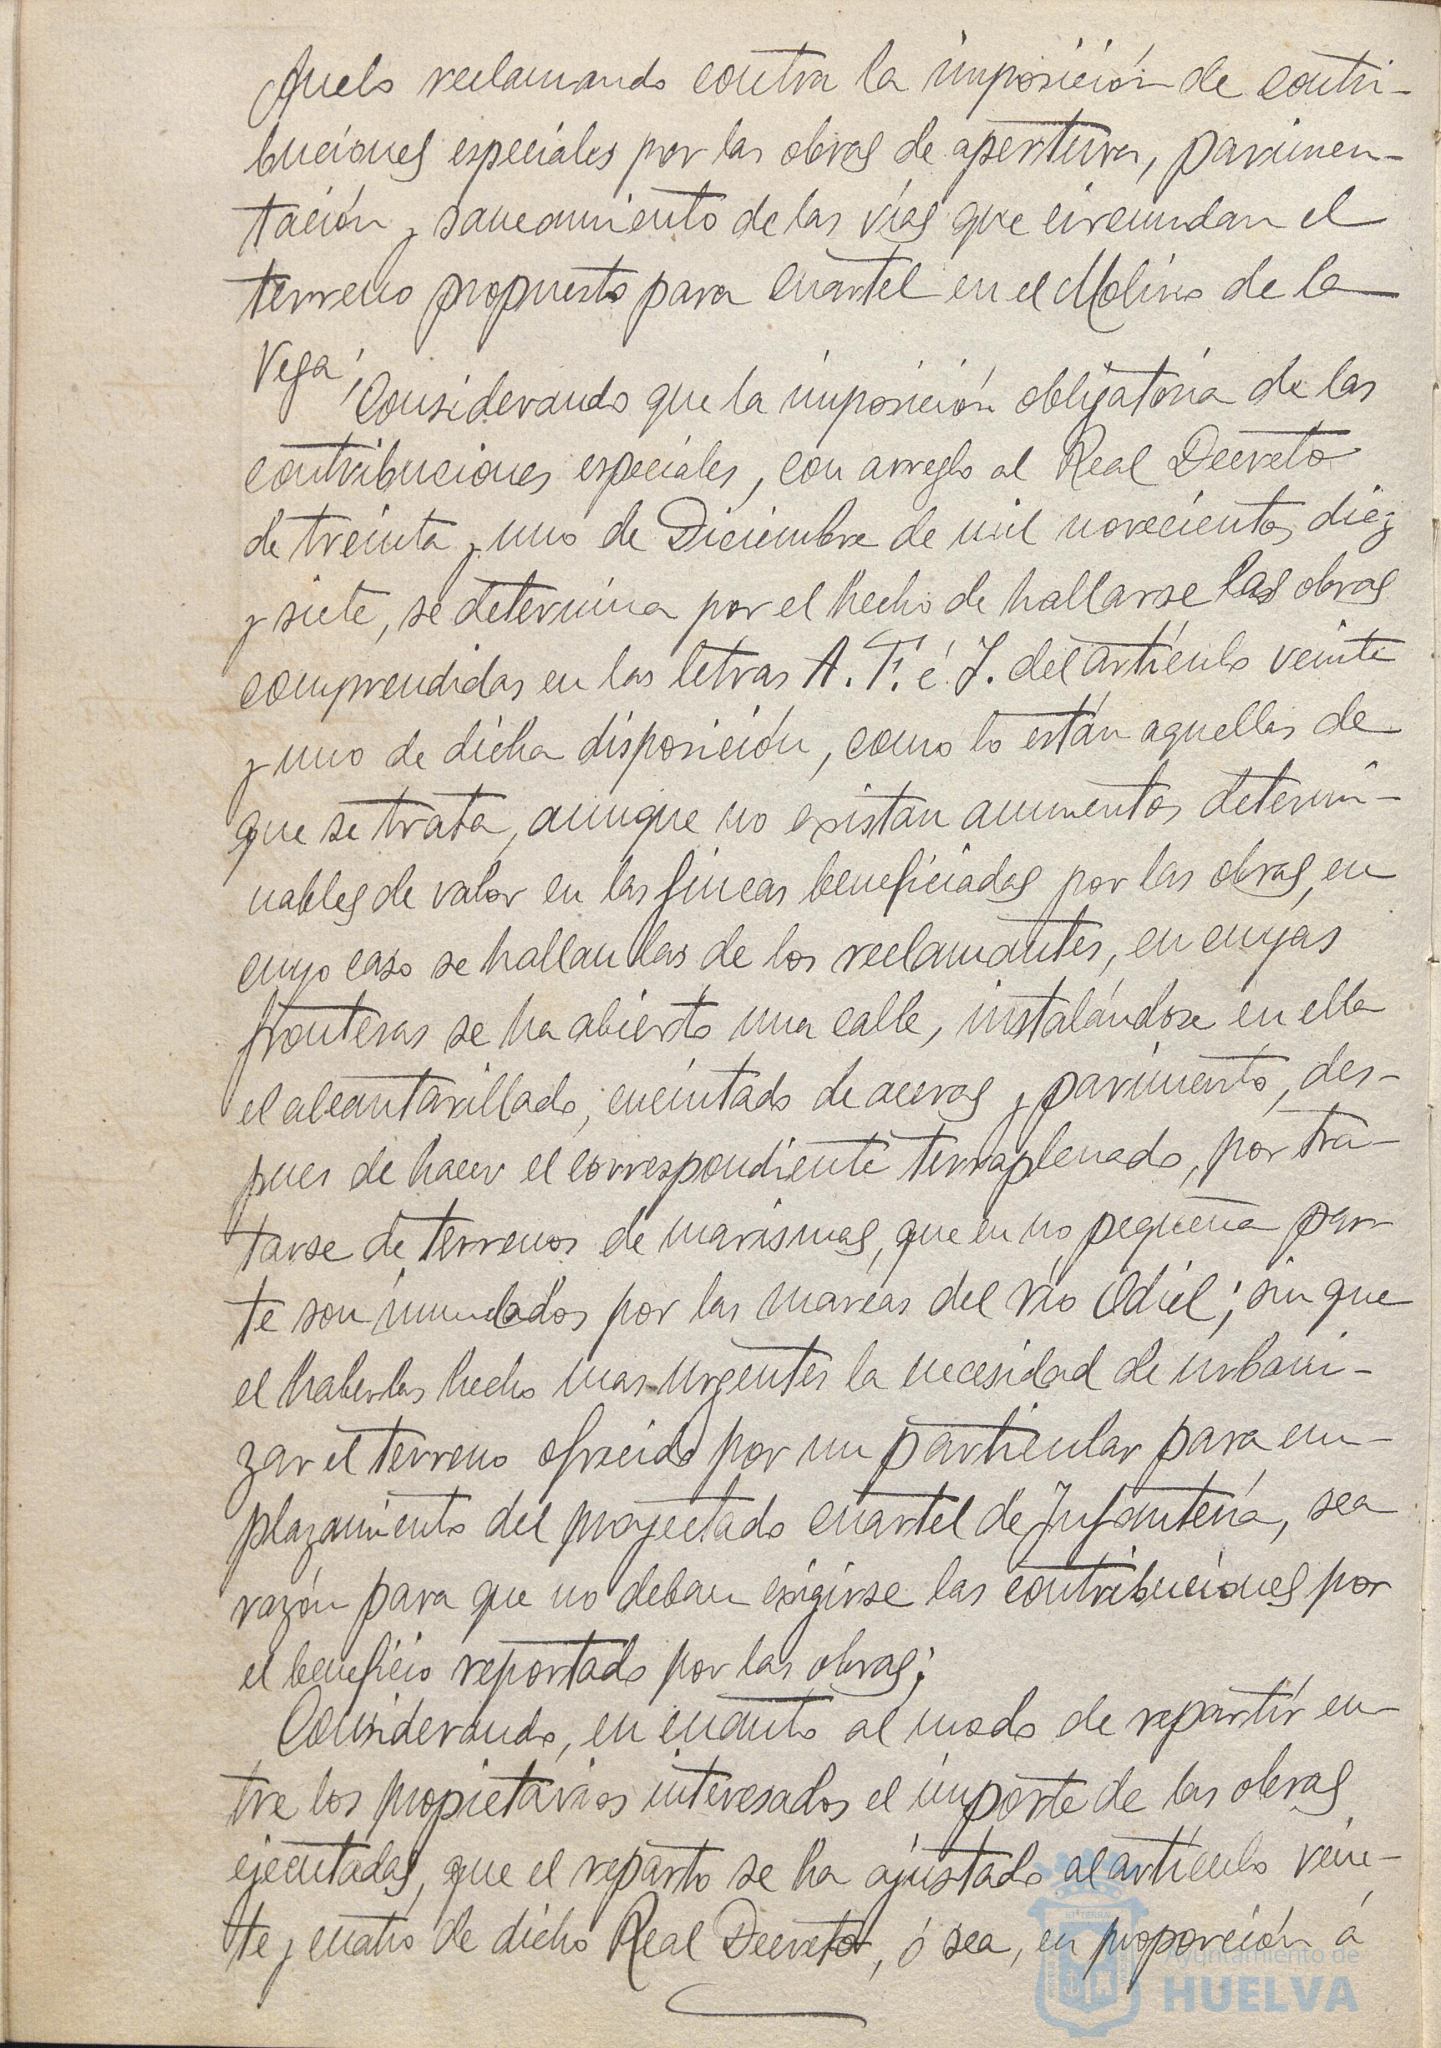 Anelo reclamando contra la imposición de contri-
buciones especiales por las obras de apertura, pavimen-
tación y saneamiento de las vías que circundan el
terreno propuesto para cuartel en el Molino de la
Vega;
Considerando que la imposición obligatoria de las
contribuciones especiales, con arreglo al Real Decreto
de treinta y uno de Diciembre de mil novecientos diez
y siete, se determina por el hecho de hallarse las obras
comprendidas en las letras A. F. é J. del artículo veinte
y uno de dicha disposición, como lo están aquellas de
que se trata, aunque no existan aumentos determi-
nables de valor en las fincas beneficiadas por las obras, en
cuyo caso se hallan las de los reclamantes, en cuyas
fronteras se ha abierto una calle, instalándose en ella
el alcantarillado, encintado de aceras y pavimento, des-
pues de hacer el correspondiente terraplenado, por tra-
tarse de terrenos de marismas, que en no pequeña par-
te son inundados por las mareas del río Odiel; sin que
el haberlas hecho mas urgentes la necesidad de urbani-
zar el terreno ofrecido por un particular para em-
plazamiento del proyectado cuartel de Infantería, sea
razón para que no deban exigirse las contribuciones por
el beneficio reportado por las obras;
Considerando, en cuanto al modo de repartir en-
tre los propietarios interesados el importe de las obras
ejecutadas, que el reparto se ha ajustado al artículo vein-
te y cuatro de dicho Real Decreto, ó sea, en proporción á
Ayuntamiento de
HUELVA